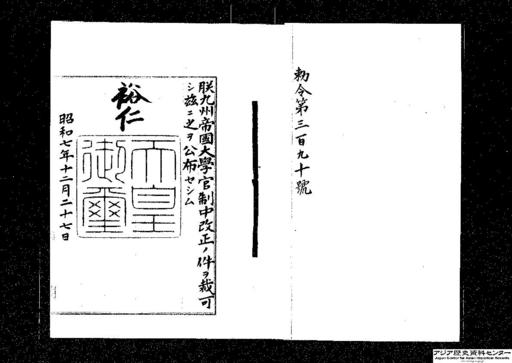 勅令第三百九十號
朕九州帝國大學官制中改正ノ件ヲ裁可
シ茲ニ之ヲ公布セシム
裕仁
天皇御璽
昭和七年十二月二十七日
アジア歴史資料センター
Japan Center for Asian Historical Records